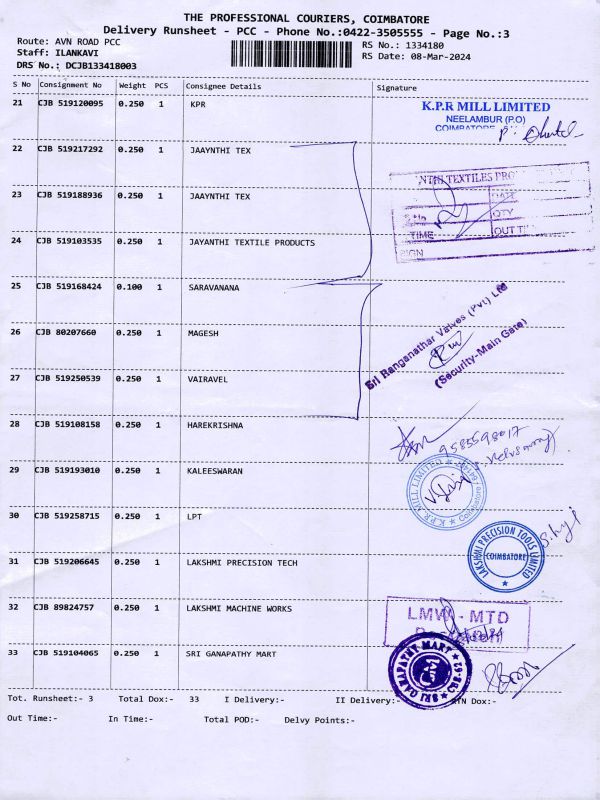 THE PROFESSIONAL COURIERS, COIMBATORE
Delivery Runsheet - PCC - Phone No.:0422-3505555 - Page No.:3
Route: AVN ROAD PCC
Staff: ILANKAVI
DRS No.: DCJB133418003
RS No.: 1334180
RS Date: 08-Mar-2024
S No Consignment No Weight PCS Consignee Details Signature
21 CJB 519120095 0.250 1 KPR
K.P.R MILL LIMITED
NEELAMBUR (P.O)
COIMBATORE
22 CJB 519217292 0.250 1 JAAYNTHI TEX
23 CJB 519188936 0.250 1 JAAYNTHI TEX
NTHI TEXTILES PRO
DATE
S.No
QTY
TIME
OUT TI
SIGN
24 CJB 519103535 0.250 1 JAYANTHI TEXTILE PRODUCTS
25 CJB 519168424 0.100 1 SARAVANANA
Sri Ranganathar Valves (Pvt) Ltd
(Security-Main Gate)
26 CJB 80207660 0.250 1 MAGESH
27 CJB 519250539 0.250 1 VAIRAVEL
28 CJB 519108158 0.250 1 HAREKRISHNA
9585598017
29 CJB 519193010 0.250 1 KALEESWARAN
K.P.R MILL LIMITED
30 CJB 519258715 0.250 1 LPT
LAKSHMI PRECISION TOOLS LIMITED
COIMBATORE
31 CJB 519206645 0.250 1 LAKSHMI PRECISION TECH
32 CJB 89824757 0.250 1 LAKSHMI MACHINE WORKS
LMW - MTD
33 CJB 519104065 0.250 1 SRI GANAPATHY MART
SRI GANAPATHY MART
CBE-62
Tot. Runsheet:- 3 Total Dox:- 33 I Delivery:- II Delivery:- RTN Dox:-
Out Time:- In Time:- Total POD:- Delvy Points:-